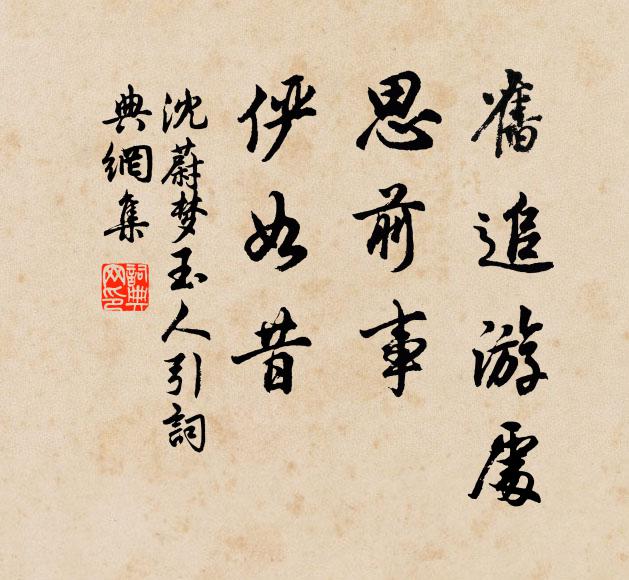 舊追游處
思前事
俨如昔
沈蔚梦玉人引詞
典網集
詞典網印